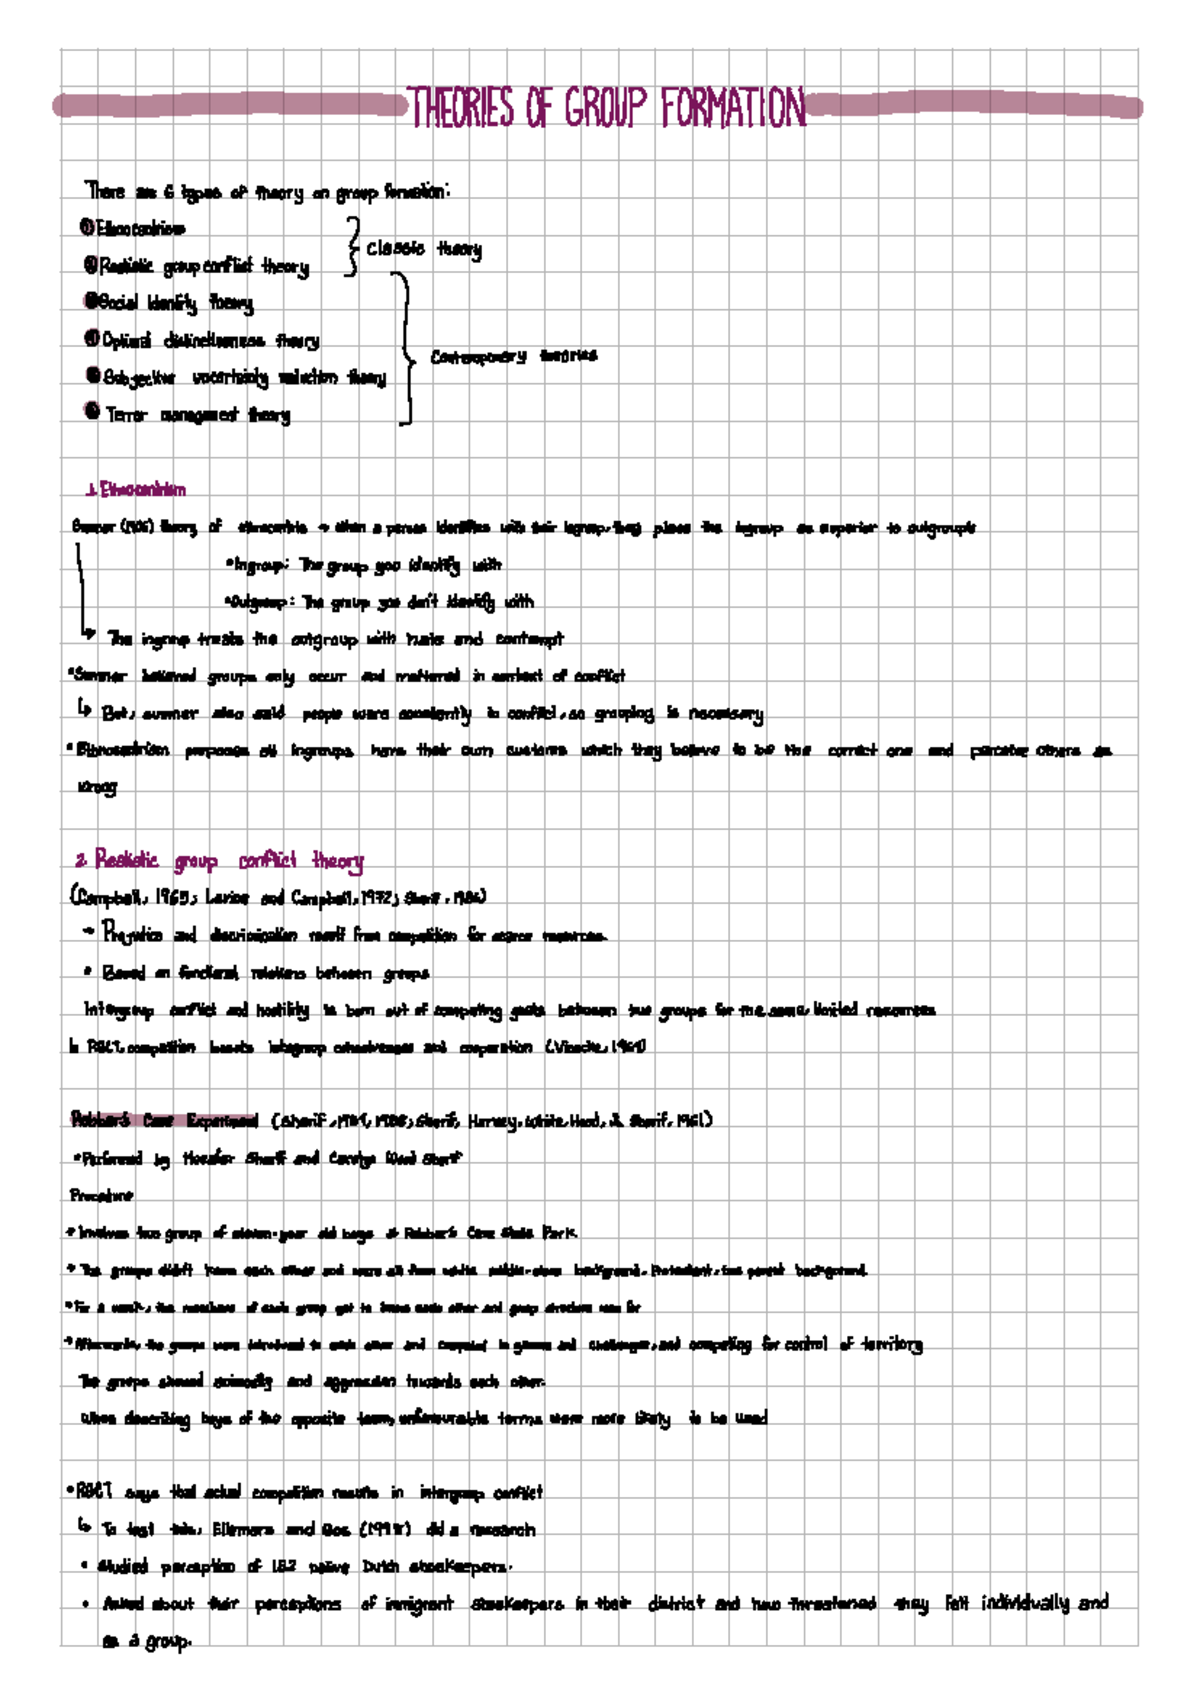 THEORIES OF GROUP FORMATION
There are 6 types of theory on group formation:
① Ethnocentrism
② Realistic group conflict theory
Classic theory
③ Social Identity theory
④ Optimal distinctiveness theory
Contemporary theories
⑤ Subjective uncertainty reduction theory
⑥ Terror management theory
1. Ethnocentrism
Sumner (1906) theory of → when a person identifies with their ingroup, they place the ingroup as superior to outgroups
•Ingroup: The group you identify with
•Outgroup: The group you don't identify with
→ The ingroup treats the outgroup with hate and contempt
•Sumner believed groups only occur and mattered in context of conflict
↳ But, sumner also said people were constantly in conflict, so grouping is necessary
•Ethnocentrism purposes all ingroups have their own customs which they believe to be the correct one and perceive others as
wrong
2. Realistic group conflict theory
(Campbell, 1965; Levine and Campbell, 1972; Sherif, 1966)
→ Prejudice and discrimination result from competition for scarce resources.
• Based on functional relations between groups
Intergroup conflict and hostility is born out of competing goals between two groups for the same, limited resources
↳ RGCT, competition boosts intragroup cohesiveness and cooperation (Vinacke, 1964)
Robber's Cave Experiment (Sherif, Sherif, Harvey, White, Hood, & Sherif, 1961)
•Performed by Muzafer Sherif and Carolyn Wood Sherif
Procedure
• Involves two group of eleven-year old boys at Robber's Cave State Park.
• The groups didn't know each other and were all from white, middle-class background, Protestant, two parent background.
•For a week, the members of each group got to know each other and group structure
• Afterwards, the groups were introduced to each other and competed in games and challenges, and competing for control of territory
The groups showed animosity and aggression towards each other.
When describing boys of the opposite team, unfavourable terms were more likely to be used
•RGCT says that actual competition results in intergroup conflict
↳ To test this, Ellemers and Bos (1998) did a research
• Studied perception of 182 native Dutch shopkeepers.
• Asked about their perceptions of immigrant shopkeepers in their district and how threatened they felt individually and
as a group.